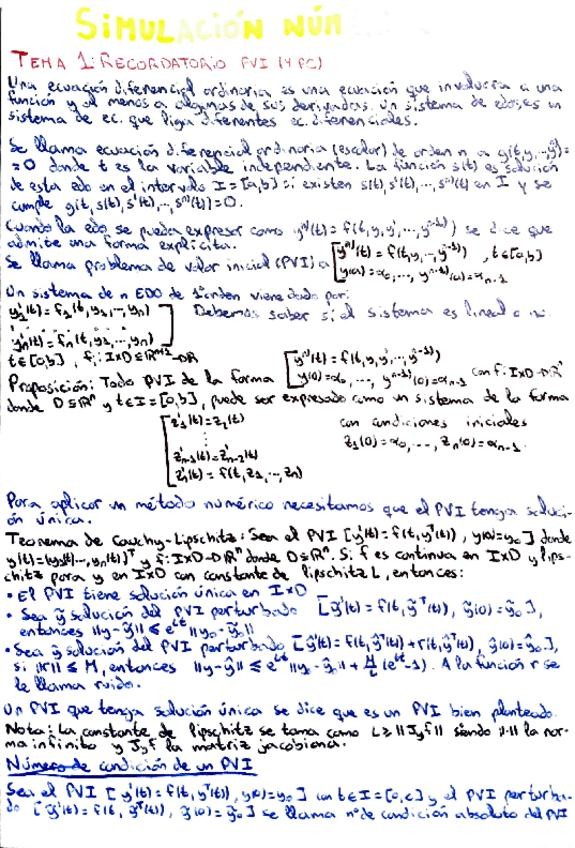 SIMULACIÓN NÚM
TEMA 1: RECORDATORIO PVI (Y PC)
Una ecuación diferencial ordinaria es una ecuación que involucra a una
función y al menos a algunas de sus derivadas. Un sistema de edos es un
sistema de ec. que liga diferentes ec. diferenciales.
Se llama ecuación diferencial ordinaria (escalar) de orden n a g(t,y,...,yⁿ⁾)=
=0 donde t es la variable independiente. La función s(t) es solución
de esta edo en el intervalo I=[a,b] si existen s(t), s'(t),..., sⁿ⁾(t) en I y se
cumple g(t, s(t), s'(t),..., sⁿ⁾(t))=0.
Cuando la edo se pueda expresar como yⁿ⁾(t) = f(t,y,y',...,yⁿ⁻¹⁾) se dice que
admite una forma explícita.
Se llama problema de valor inicial (PVI) a [yⁿ⁾(t) = f(t,y,...,yⁿ⁻¹⁾) , t∈[a,b]
y(a)=α₀,..., yⁿ⁻¹⁾(a)=αₙ₋₁
Un sistema de n EDO de 1er orden viene dado por:
y₁'(t) = f₁(t, y₁,..., yₙ) Debemos saber si el sistema es lineal o no.
yₙ'(t) = fₙ(t, y₁,..., yₙ)
t∈[a,b], fᵢ: I×D⊆ℝⁿ⁺¹→ℝ
Proposición: Todo PVI de la forma [yⁿ⁾(t) = f(t,y,y',...,yⁿ⁻¹⁾) con f: I×D→ℝⁿ
y(0)=α₀, ..., yⁿ⁻¹⁾(0)=αₙ₋₁
donde D⊆ℝⁿ y t∈I=[a,b], puede ser expresado como un sistema de la forma
[z₁'(t)=z₂(t) con condiciones iniciales
⋮ z₁(0)=α₀,...., zₙ(0)=αₙ₋₁.
zₙ'(t) = f(t, z₁,..., zₙ)
Para aplicar un método numérico necesitamos que el PVI tenga soluci-
ón única.
Teorema de Cauchy-Lipschitz: Sea el PVI [y'(t) = f(t, yᵀ(t)), y(0)=y₀] donde
y(t)=(y₁(t),...,yₙ(t))ᵀ y f: I×D→ℝⁿ donde D⊆ℝⁿ. Si f es continua en I×D y lips-
chitz para y en I×D con constante de lipschitz L, entonces:
• El PVI tiene solución única en I×D
• Sea ỹ solución del PVI perturbado [ỹ'(t) = f(t, ỹᵀ(t)), ỹ(0)=ỹ₀],
entonces ||y-ỹ|| ≤ eᴸᵗ ||y₀-ỹ₀||
• Sea ŷ solución del PVI perturbado [ŷ'(t) = f(t, ŷᵀ(t)) + r(t, ŷᵀ(t)), ŷ(0)=ŷ₀],
si ||r|| ≤ M, entonces ||y-ŷ|| ≤ eᴸᵗ ||y₀-ŷ₀|| + M/L (eᴸᵗ-1). A la función r se
le llama ruido.
Un PVI que tenga solución única se dice que es un PVI bien planteado.
Nota: La constante de lipschitz se toma como L≥||Jyf|| siendo ||·|| la nor-
ma infinito y Jyf la matriz jacobiana.
Número de condición de un PVI
Sea el PVI [y'(t) = f(t, yᵀ(t)), y(0)=y₀] con t∈I=[0,c] y el PVI perturba-
do [ỹ'(t) = f(t, ỹᵀ(t)), ỹ(0)=ỹ₀] se llama nº de condición absoluto del PVI